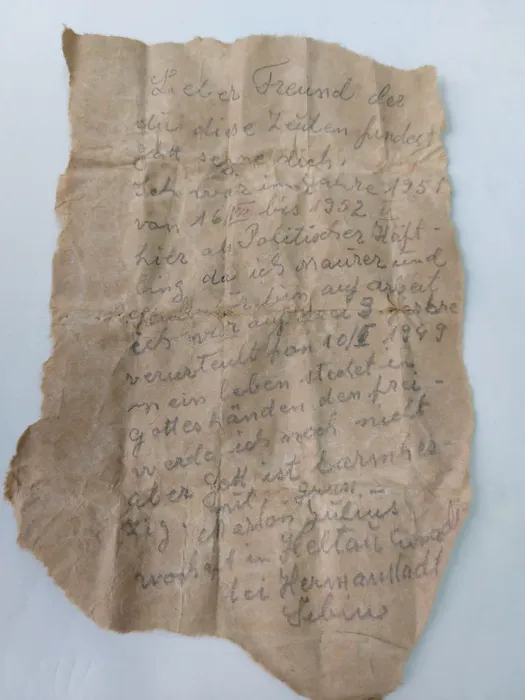 Lieber Freund der
du diese Zeilen findest
Gott segne dich.
Ich war im Jahre 1951
von 16/III bis 1952 II
hier als Politischer Häft-
ling da ich Maurer und
bin auf arbeit
ich war auf 3 Jahre
verurteilt von 10/I 1949
mein leben stehet in
gotteshänden den frei-
werde ich noch nicht
aber Gott ist barmher-
zig. mit gruss
Julius
wohaft in Heltau
bei Hermanstadt
Sibiu